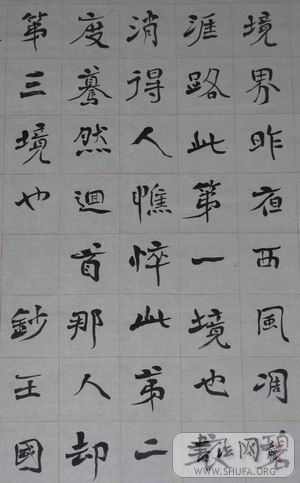 境界昨夜西風凋
涯路此第一境也
消得人憔悴此第二
度驀然迴首那人却
第三境也 鈔王國
WWW.SHUFA.ORG